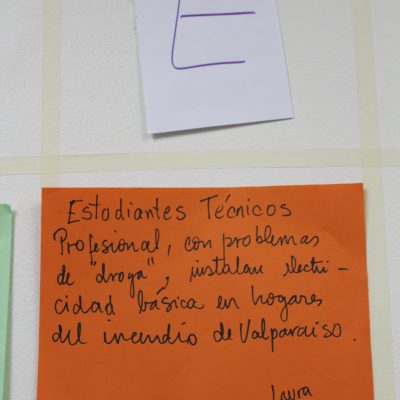 E
Estudiantes Técnicos
Profesional, con problemas
de "droga", instalan electri-
cidad básica en hogares
del incendio de Valparaiso.
Laura